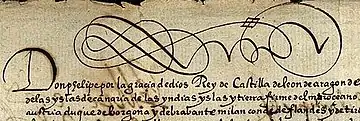 Don phelipe por la gracia de dios Rey de Castilla de leon de aragon de
de las yslas de canaria de las yndias yslas y tierra firme del mar oceano
austria duque de borgoña y de brabante milan conde de flandes y de tirol